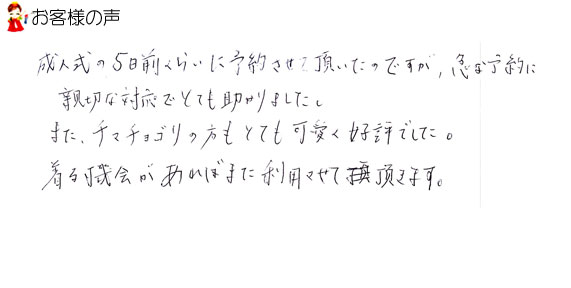 お客様の声
成人式の5日前くらいに予約させて頂いたのですが、急な予約に
親切な対応でとても助かりました。
また、チマチョゴリの方もとても可愛く好評でした。
着る機会があればまた利用させて頂きます。